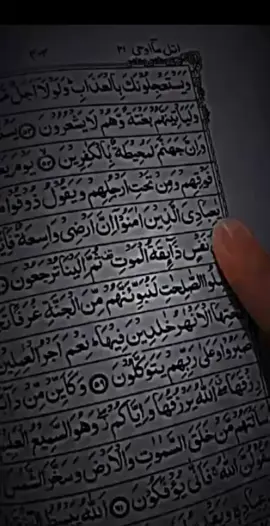 اتل ما اوحی ۲۱
وَيَسْتَعْجِلُوْنَكَ بِالْعَذَابِ وَلَوْلَا اَجَلٌ
وَلَيَاْتِيَنَّهُمْ بَغْتَةً وَّهُمْ لَا يَشْعُرُوْنَ ۝۵۳
وَاِنَّ جَهَنَّمَ لَمُحِيْطَةٌ بِالْكٰفِرِيْنَ ۝۵۴ يَوْمَ
فَوْقِهِمْ وَمِنْ تَحْتِ اَرْجُلِهِمْ وَيَقُوْلُ ذُوْقُوْا
يٰعِبَادِيَ الَّذِيْنَ اٰمَنُوْٓا اِنَّ اَرْضِيْ وَاسِعَةٌ
نَفْسٍ ذَآئِقَةُ الْمَوْتِ ثُمَّ اِلَيْنَا تُرْجَعُوْنَ
الصّٰلِحٰتِ لَنُبَوِّئَنَّهُمْ مِّنَ الْجَنَّةِ غُرَفًا
تَحْتِهَا الْاَنْهٰرُ خٰلِدِيْنَ فِيْهَا نِعْمَ اَجْرُ الْعٰمِلِيْنَ
صَبَرُوْا وَعَلٰى رَبِّهِمْ يَتَوَكَّلُوْنَ ۝۵۹ وَكَاَيِّنْ مِّنْ
رِزْقَهَا اَللّٰهُ يَرْزُقُهَا وَاِيَّاكُمْ وَهُوَ السَّمِيْعُ
سَاَلْتَهُمْ مَّنْ خَلَقَ السَّمٰوٰتِ وَالْاَرْضَ وَسَخَّرَ الشَّمْسَ
اللّٰهُ فَاَنّٰى يُؤْفَكُوْنَ ۝۶۱ اَللّٰهُ يَبْسُطُ